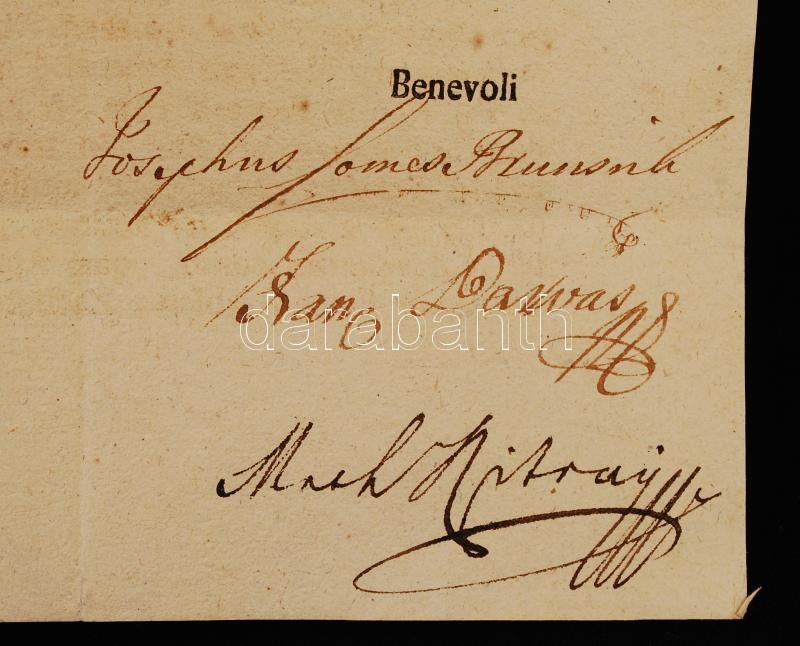 Benevoli
Josephus Comes Brunsvik
Franz Darvas
darabanth
Mich Nitray